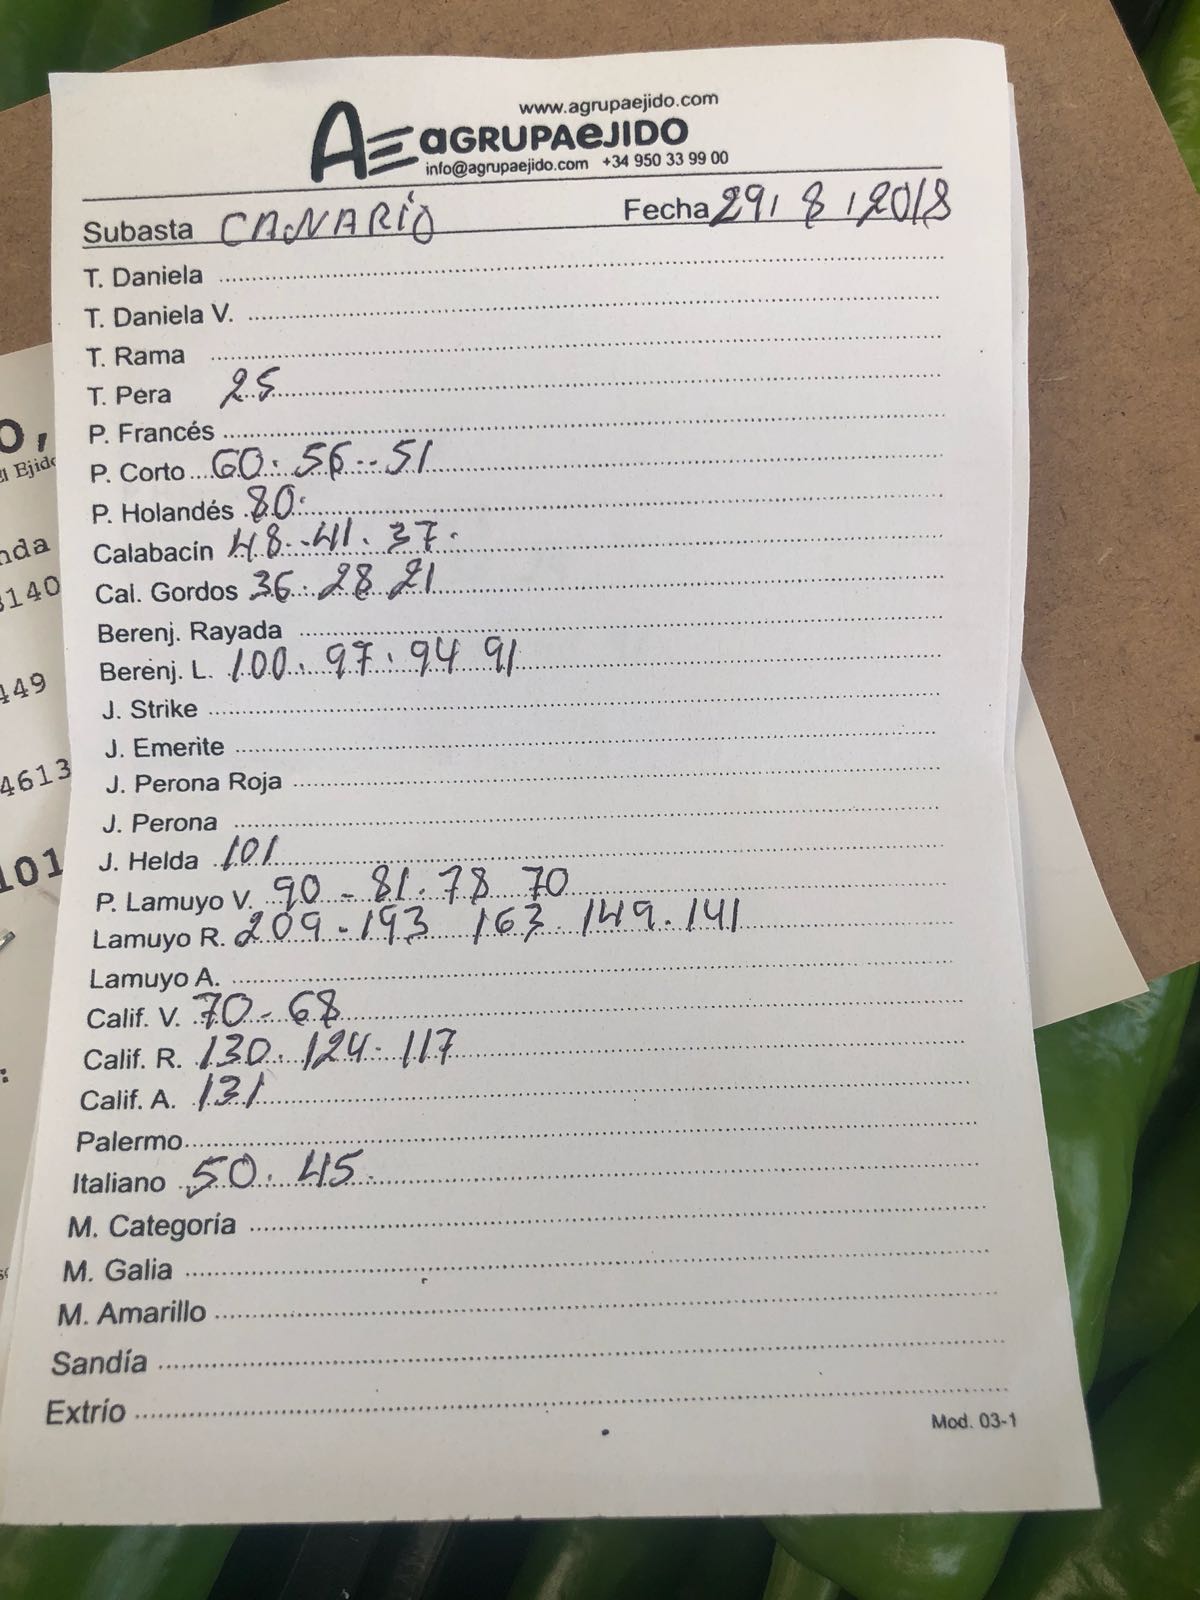 www.agrupaejido.com
AE aGRUPAeJIDO
info@agrupaejido.com +34 950 33 99 00
Subasta CANARIO Fecha 29/8/2018
T. Daniela
T. Daniela V.
T. Rama
T. Pera 25
P. Francés
P. Corto 60. 56.. 51
P. Holandés 80.
Calabacín 48..41. 37.
Cal. Gordos 36. 28 21
Berenj. Rayada
Berenj. L. 100. 97. 94 91
J. Strike
J. Emerite
J. Perona Roja
J. Perona
J. Helda 101
P. Lamuyo V. 90 - 81. 78 70
Lamuyo R. 209 - 193 163. 149. 141
Lamuyo A.
Calif. V. 70 - 68
Calif. R. 130. 124. 117
Calif. A. 131
Palermo
Italiano 50. 45.
M. Categoría
M. Galia
M. Amarillo
Sandía
Extrío
Mod. 03-1
o,
Ejido
nda
3140
449
4613
101
: